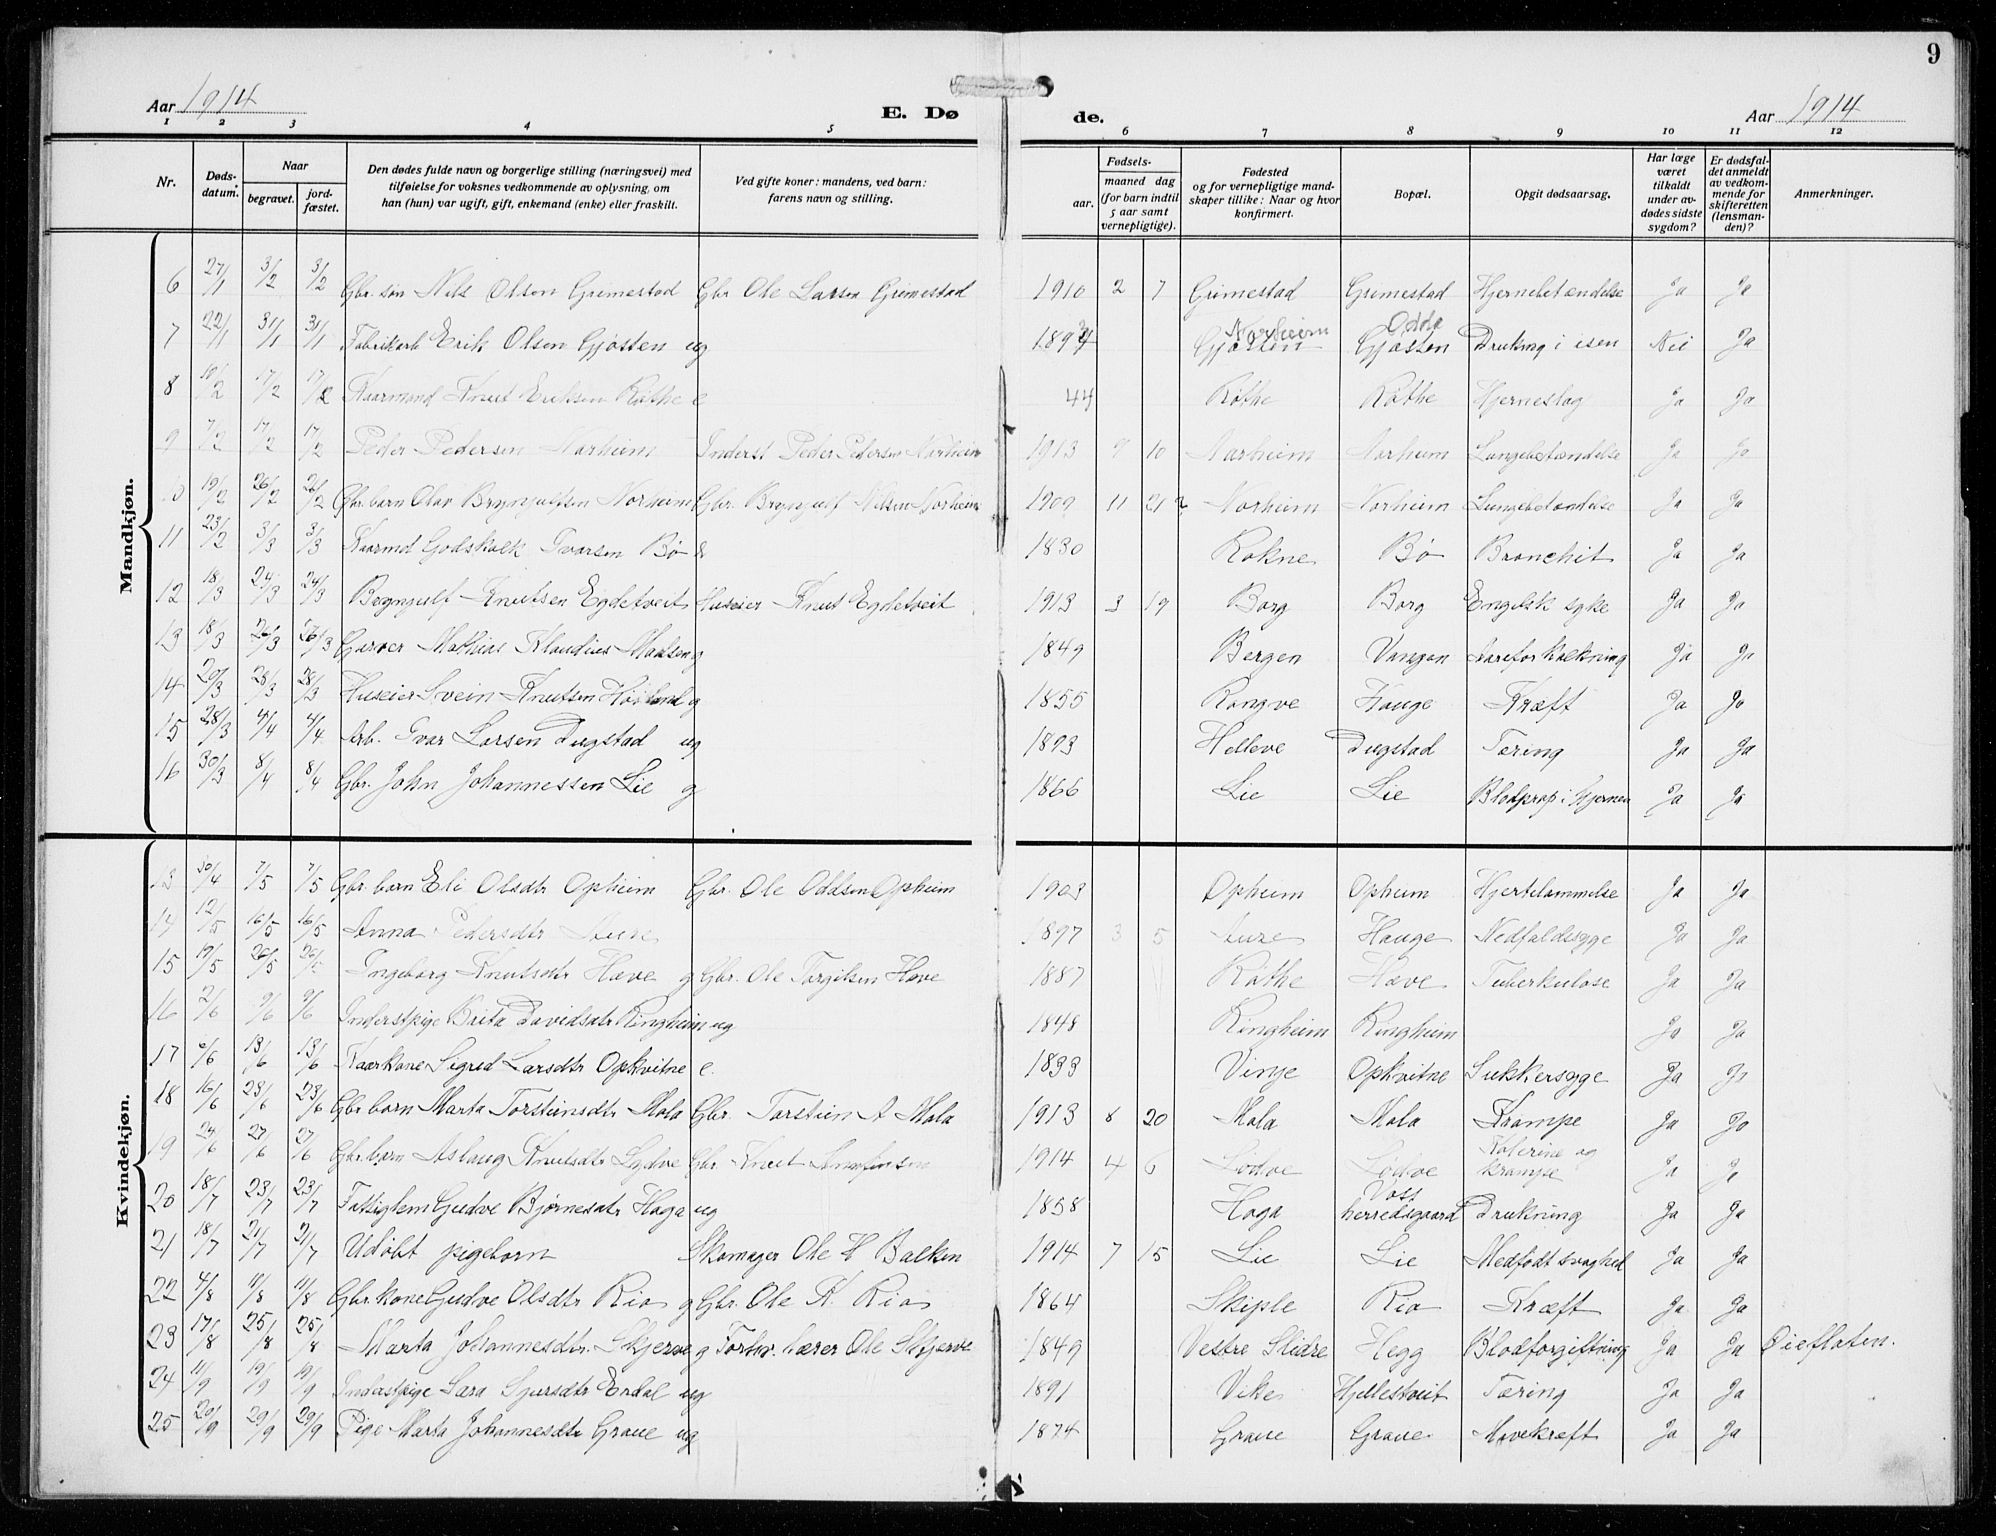 9
Aar 1914 E. Dø de. Aar 1914
1 2 3 4 5 6 7 8 9 10 11 12
Nr. Døds-datum. Naar begravet. jord-fæstet. Den dødes fulde navn og borgerlige stilling (næringsvei) med tilføielse for voksnes vedkommende av oplysning, om han (hun) var ugift, gift, enkemand (enke) eller fraskilt. Ved gifte koner: mandens, ved barn: farens navn og stilling. Fødsels- aar. maaned dag (for barn indtil 5 aar samt vernepligtige). Fødested og for vernepligtige mand-skaper tillike: Naar og hvor konfirmert. Bopæl. Opgit dødsaarsag. Har læge været tilkaldt under av-dødes sidste sygdom? Er dødsfal-det anmeldt av vedkom-mende for skifteretten (lensman-den)? Anmerkninger.
Mandkjøn.
6 27/1 3/2 3/2 Gbr. søn Nils Olsen Grimestad Gbr Ole Larsen Grimestad 1910 2 7 Grimestad Grimestad Hjernebetændelse Ja Ja
7 22/1 31/1 31/1 Fabrikarb Erik Olsen Gjøsten ug Norheim Gjøsten Odda Gjøsten Drukning i isen Nei Ja
8 10/2 17/2 17/2 Kaarmand Knut Eriksen Røthe e 44 Røthe Røthe Hjerneslag Ja Ja
9 7/2 17/2 17/2 Peder Pedersen Norheim Inderst Peder Pedersen Norheim 1913 9 10 Norheim Norheim Lungebetændelse Ja Ja
10 19/2 26/2 26/2 Gbr. barn Olav Brynjulfsen Norheim Gbr. Brynjulf Nilsen Norheim 1909 11 21 ? Norheim Norheim Lungebetændelse Ja Ja
11 23/2 3/3 3/3 Kaarmd Godskalk Ivarsen Bø e 1830 Rokne Bø Bronchit Ja Ja
12 18/3 24/3 24/3 Brynjulf Knutsen Egdetveit Huseier Knut Egdetveit 1913 3 19 Borg Borg Engelsk syke Ja Ja
13 18/3 26/3 26/3 Garver Mathias Klaudius Madsen g 1849 Bergen Vangen Aareforkalkning Ja Ja
14 20/3 28/3 28/3 Huseier Svein Knutsen g 1855 Rongve Hauge Kræft Ja Ja
15 28/3 4/4 4/4 Arb. Ivar Larsen Dugstad ug 1893 Helleve Dugstad Tæring Ja Ja
16 30/3 8/4 8/4 Gbr. John Johannessen Lie g 1866 Lie Lie Blodprop i Hjernen Ja Ja
Kvindekjøn.
13 30/4 7/5 7/5 Gbr. barn Eli Olsdtr Opheim Gbr. Ole Oddsen Opheim 1903 Opheim Opheim Hjertelammelse Ja Ja
14 12/5 16/5 16/5 Anna Pedersdtr Aure 1897 3 5 Aure Hauge Nedfaldssyge Ja Ja
15 19/5 26/5 26/5 Ingeborg Knutsdtr Hæve g Gbr. Ole Torgilsen Hæve 1887 Røthe Hæve Tuberkulose Ja Ja
16 2/6 9/6 9/6 Inderstpige Brita Davidsdtr Ringheim ug 1848 Ringheim Ringheim Ja Ja
17 6/6 13/6 13/6 Kaarkone Sigrid Larsdtr Opkvitne e. 1833 Vinje Opkvitne Sukkersyge Ja Ja
18 16/6 23/6 23/6 Gbr barn Marta Torsteinsdtr Mala Gbr. Torstein A Mala 1913 8 20 Mala Mala Krampe Ja Ja
19 24/6 27/6 27/6 Gbr. barn Aslaug Knutsdtr Lydve Gbr. Knut 1914 4 6 Lødve Lødve Kolerine og krampe Ja Ja
20 18/7 23/7 23/7 Fattiglem Gudve Bjørnesdtr Haga ug 1858 Haga Voss herredsgaard Drukning Ja Ja
21 18/7 21/7 21/7 Udøbt pigebarn Skomager Ole H Balken 1914 7 15 Lie Lie Medfødt svaghed Ja Ja
22 4/8 11/8 11/8 Gbr. kone Gudve Olsdtr Rio g Gbr. Ole K. Rio 1864 Skiple Rio Kræft Ja Ja
23 17/8 25/8 25/8 Marta Johannesdtr. Skjerve g Forhv. lærer Ole Skjerve 1849 Vestre Slidre Hegg Blodforgiftning Ja Ja Øieflaten.
24 11/9 19/9 19/9 Inderstpige Sara Sjursdtr Endal ug 1891 Vike Hjellestveit Tæring Ja Ja
25 20/9 29/9 29/9 Pige Marta Johannesdtr Graue ug 1874 Graue Graue Mavekræft Ja Ja